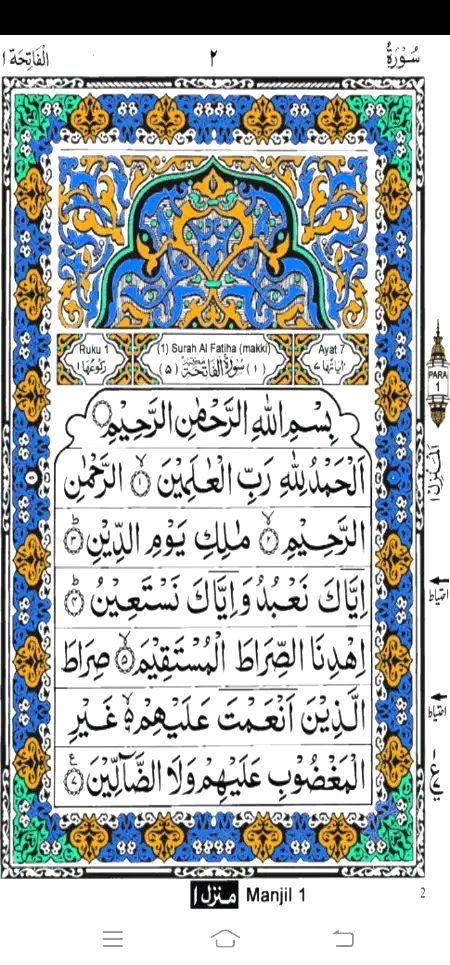 سُوْرَةُ ٢ الْفَاتِحَة ١
Ruku 1 (1) Surah Al Fatiha (makki) Ayat 7
رُكُوْعُهَا ١ (٥) سُوْرَةُ الْفَاتِحَةِ مَكِّيَّةٌ (١) اٰيَاتُهَا ٧
بِسْمِ اللّٰهِ الرَّحْمٰنِ الرَّحِيْمِ
اَلْحَمْدُ لِلّٰهِ رَبِّ الْعٰلَمِيْنَ ۙ﴿١﴾ الرَّحْمٰنِ
الرَّحِيْمِ ۙ﴿٢﴾ مٰلِكِ يَوْمِ الدِّيْنِ ؕ﴿٣﴾
اِيَّاكَ نَعْبُدُ وَاِيَّاكَ نَسْتَعِيْنُ ؕ﴿٤﴾
اِهْدِنَا الصِّرَاطَ الْمُسْتَقِيْمَ ۙ﴿٥﴾ صِرَاطَ
الَّذِيْنَ اَنْعَمْتَ عَلَيْهِمْ ۙ۬ۙ غَيْرِ
الْمَغْضُوْبِ عَلَيْهِمْ وَلَا الضَّآلِّيْنَ ﴿٧﴾ ع
PARA
1
اَلْمَنْزِل ١
احتياط
احتياط
ع
منزل ١ Manjil 1 2